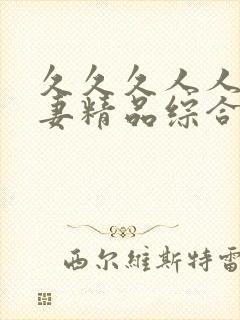 久久久人人
妻精品综合
西尔維斯特雷